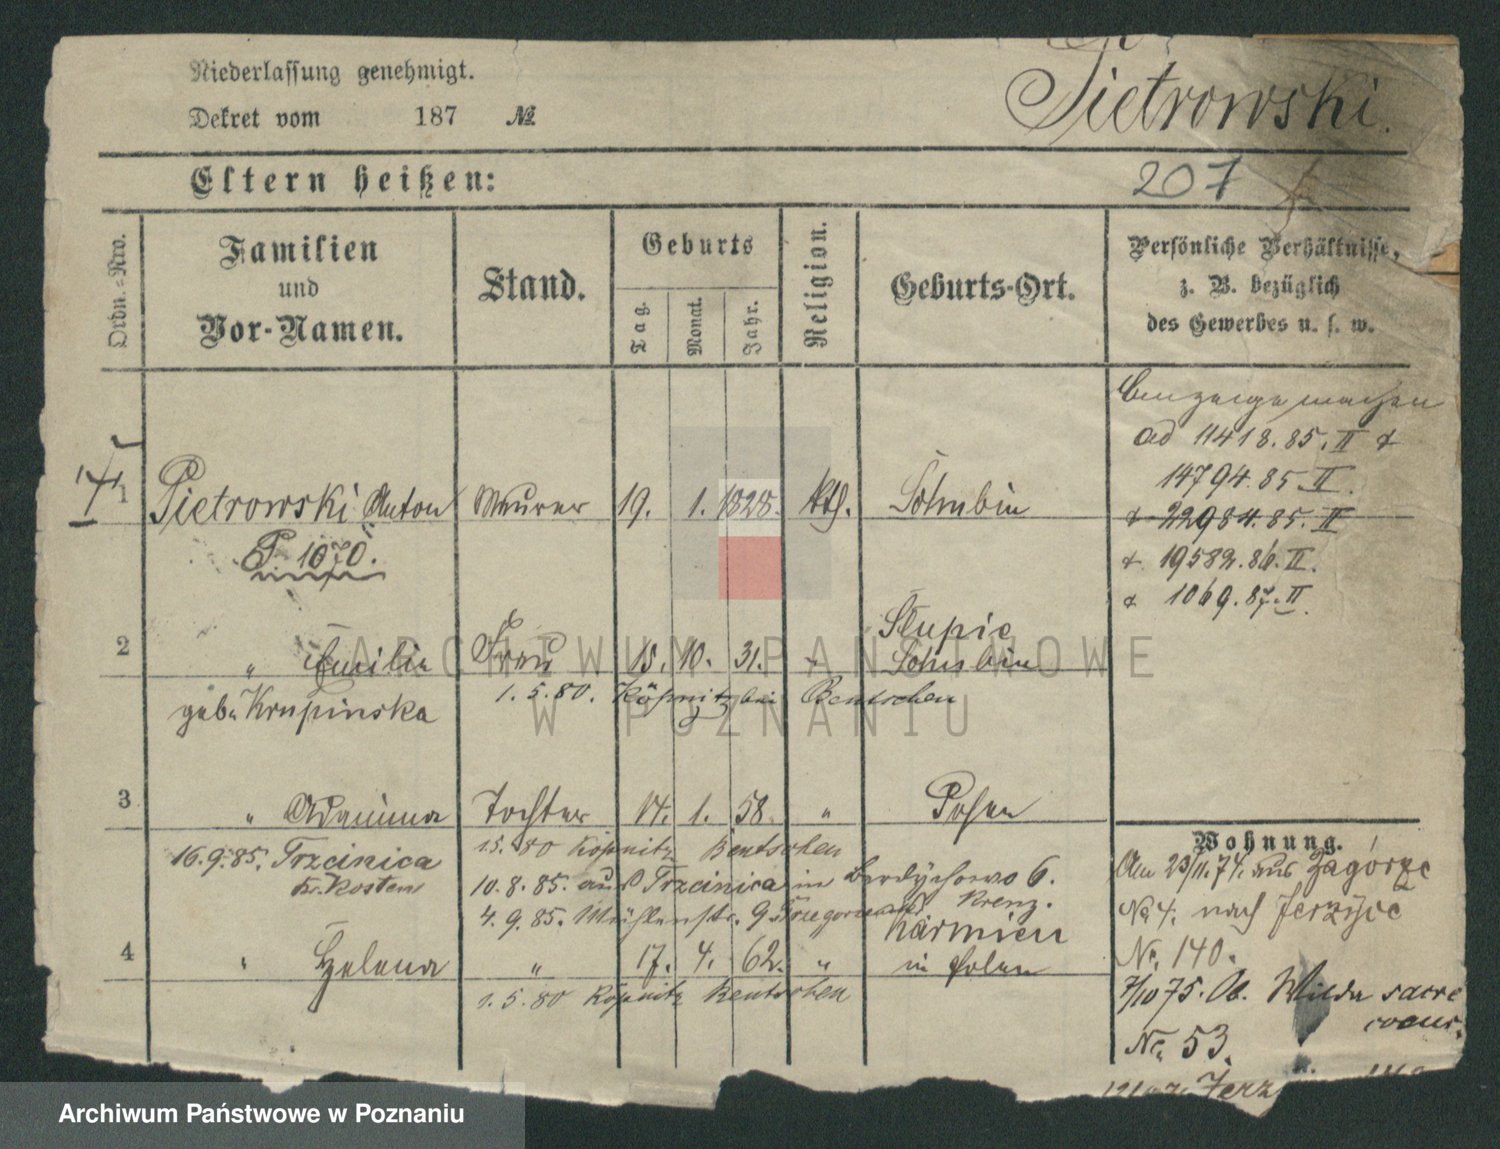 Niederlassung genehmigt.
Dekret vom 187 №
Pietrowski.
Eltern heißen:
207
Ordn.-Nro.
Familien
und
Vor-Namen.
Stand.
Geburts
Tag.
Monat.
Jahr.
Religion.
Geburts-Ort.
Persönliche Verhältnisse,
z. B. bezüglich
des Gewerbes u. s. w.
machen
ad 11418.85.II &
14794.85.II.
& 22984.85.II
& 19582.86.II.
& 1069.87.II.
1 Pietrowski Anton Maurer 19. 1. 1828. kth. Schubin
P. 1070.
Słupie
2 " Emilie Frau 15. 10. 31. Schubin
geb. Krupinska 1.5.80. Köpnitz bei Bentschen
3 " Tochter 14. 1. 58. " Posen
15. 80 Köpnitz Bentschen
16.9.85. Trzcinica
Kr. Kosten
10.8.85. aus Trzcinica in Berdychowo 6.
4.9.85. Mühlenstr. 9
4 " Helena " 17. 4. 62. " Karmien
in Polen
1.5.80 Köpnitz Bentschen
Wohnung.
Am 23/11.74. aus Zagórze
No 4. nach Jerzyce
No. 140.
7/10 75. Ob. Wilda sacre
coeur.
No. 53.
ARCHIWUM PAŃSTWOWE
W POZNANIU
Archiwum Państwowe w Poznaniu